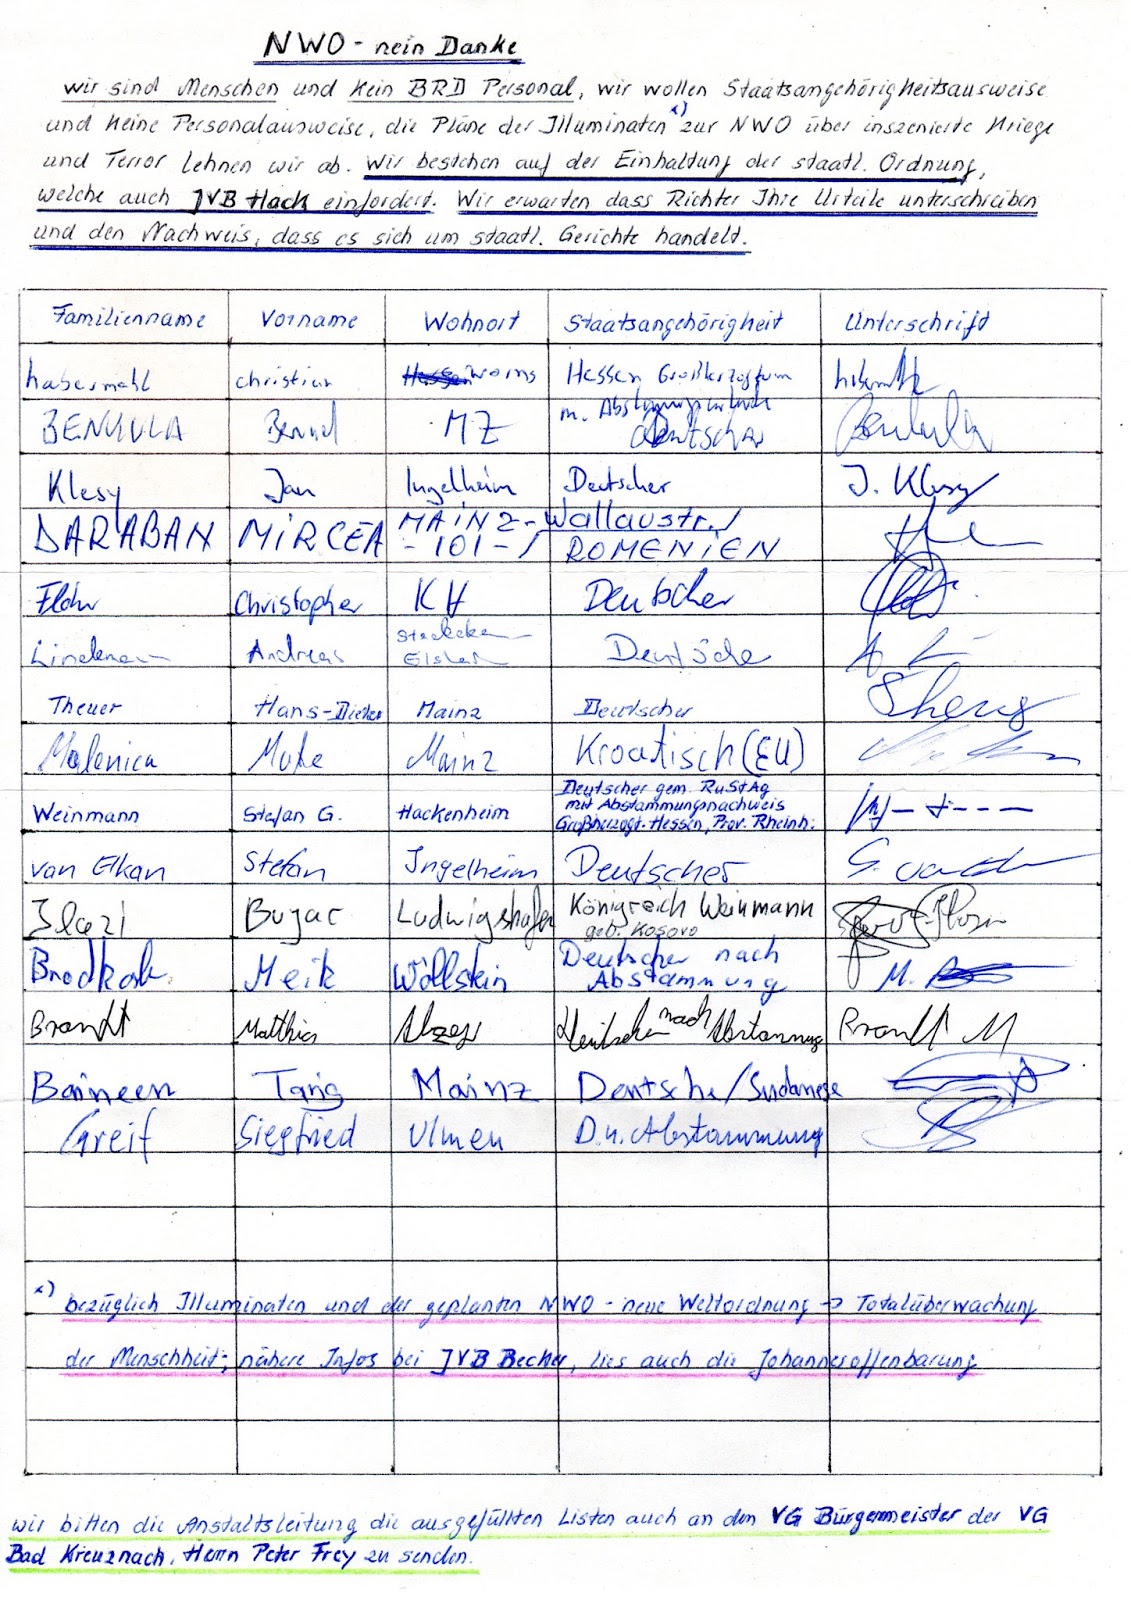 NWO - nein Danke
wir sind Menschen und kein BRD Personal, wir wollen Staatsangehörigkeitsausweise
und keine Personalausweise, die Pläne der Illuminaten x) zur NWO über inszenierte Kriege
und Terror lehnen wir ab. Wir bestehen auf der Einhaltung der staatl. Ordnung,
welche auch JVB Hack einfordert. Wir erwarten dass Richter Ihre Urteile unterschreiben
und den Nachweis, dass es sich um staatl. Gerichte handelt.
Familienname Vorname Wohnort Staatsangehörigkeit Unterschrift
habermehl christian Worms Hessen Großherzogtum
m. Abstammungsurkunde
BENKULA Bernd MZ Deutscher
Klesy Jan Ingelheim Deutscher J. Klesy
DARABAN MIRCEA MAINZ-Wallaustr.
-101- ROMENIEN
Flohr Christopher KH Deutscher
Andreas Stadecken
Elsheim Deutsche
Theuer Hans-Dieter Mainz Deutscher
Malenica Mainz Kroatisch (EU)
Weinmann Stefan G. Hackenheim Deutscher gem. RuStAg
mit Abstammungsnachweis
Großherzogt. Hessen, Prov. Rheinh.
van Elkan Stefan Ingelheim Deutscher
Ilazi Bujar Ludwigshafen Königreich Weinmann
geb. Kosovo
Meik Wöllstein Deutscher nach
Abstammung M.
Brandt Matthias Alzey Deutscher nach Abstammung Brandt M
Baineen Tarig Mainz Deutsche/Sudanese
Greif Siegfried Ulmen D.n. Abstammung
x) bezüglich Illuminaten und der geplanten NWO - neue Weltordnung -> Totalüberwachung
der Menschheit; nähere Infos bei JVB Becker, lies auch die Johannesoffenbarung
wir bitten die Anstaltsleitung die ausgefüllten Listen auch an den VG Bürgermeister der VG
Bad Kreuznach, Herrn Peter Frey zu senden.